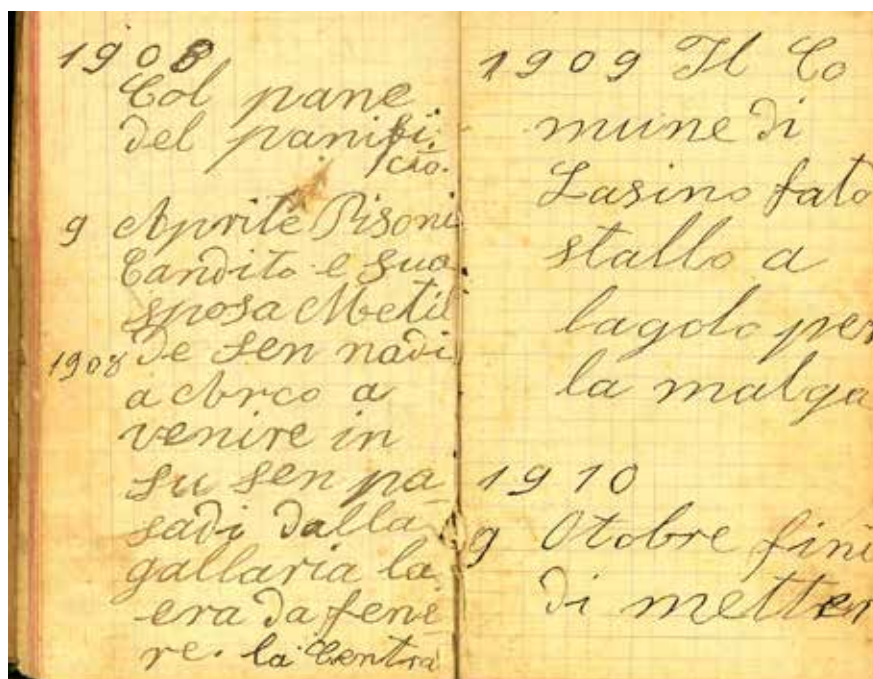 1908
Col pane
del panifi
cio.
9 Aprile Pisoni
Candito e sua
sposa Metil
1908 de sen nadi
a Arco a
venire in
su sen pa
sadi dalla
gallaria la
era da feni
re. la Centra
1909 Il Co
mune di
Lasino fato
stallo a
lagolo per
la malga
1910
9 Otobre fini
di metter